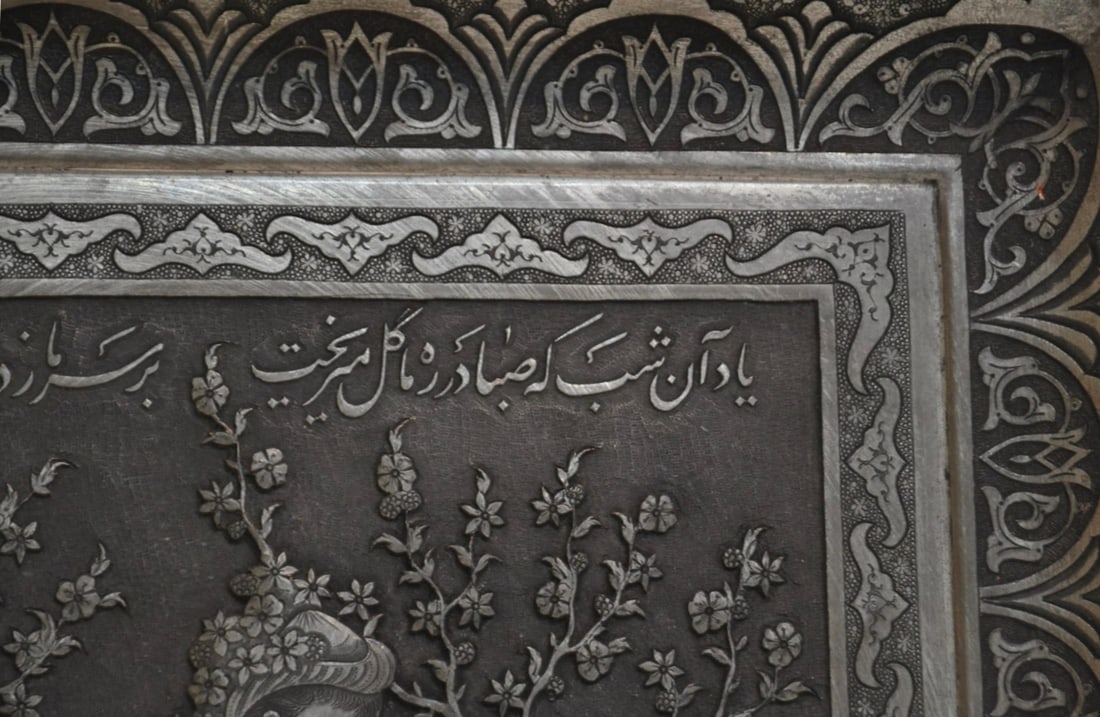 یاد آن شب که صبا در ره ما گل میریخت بر سر ما ز د